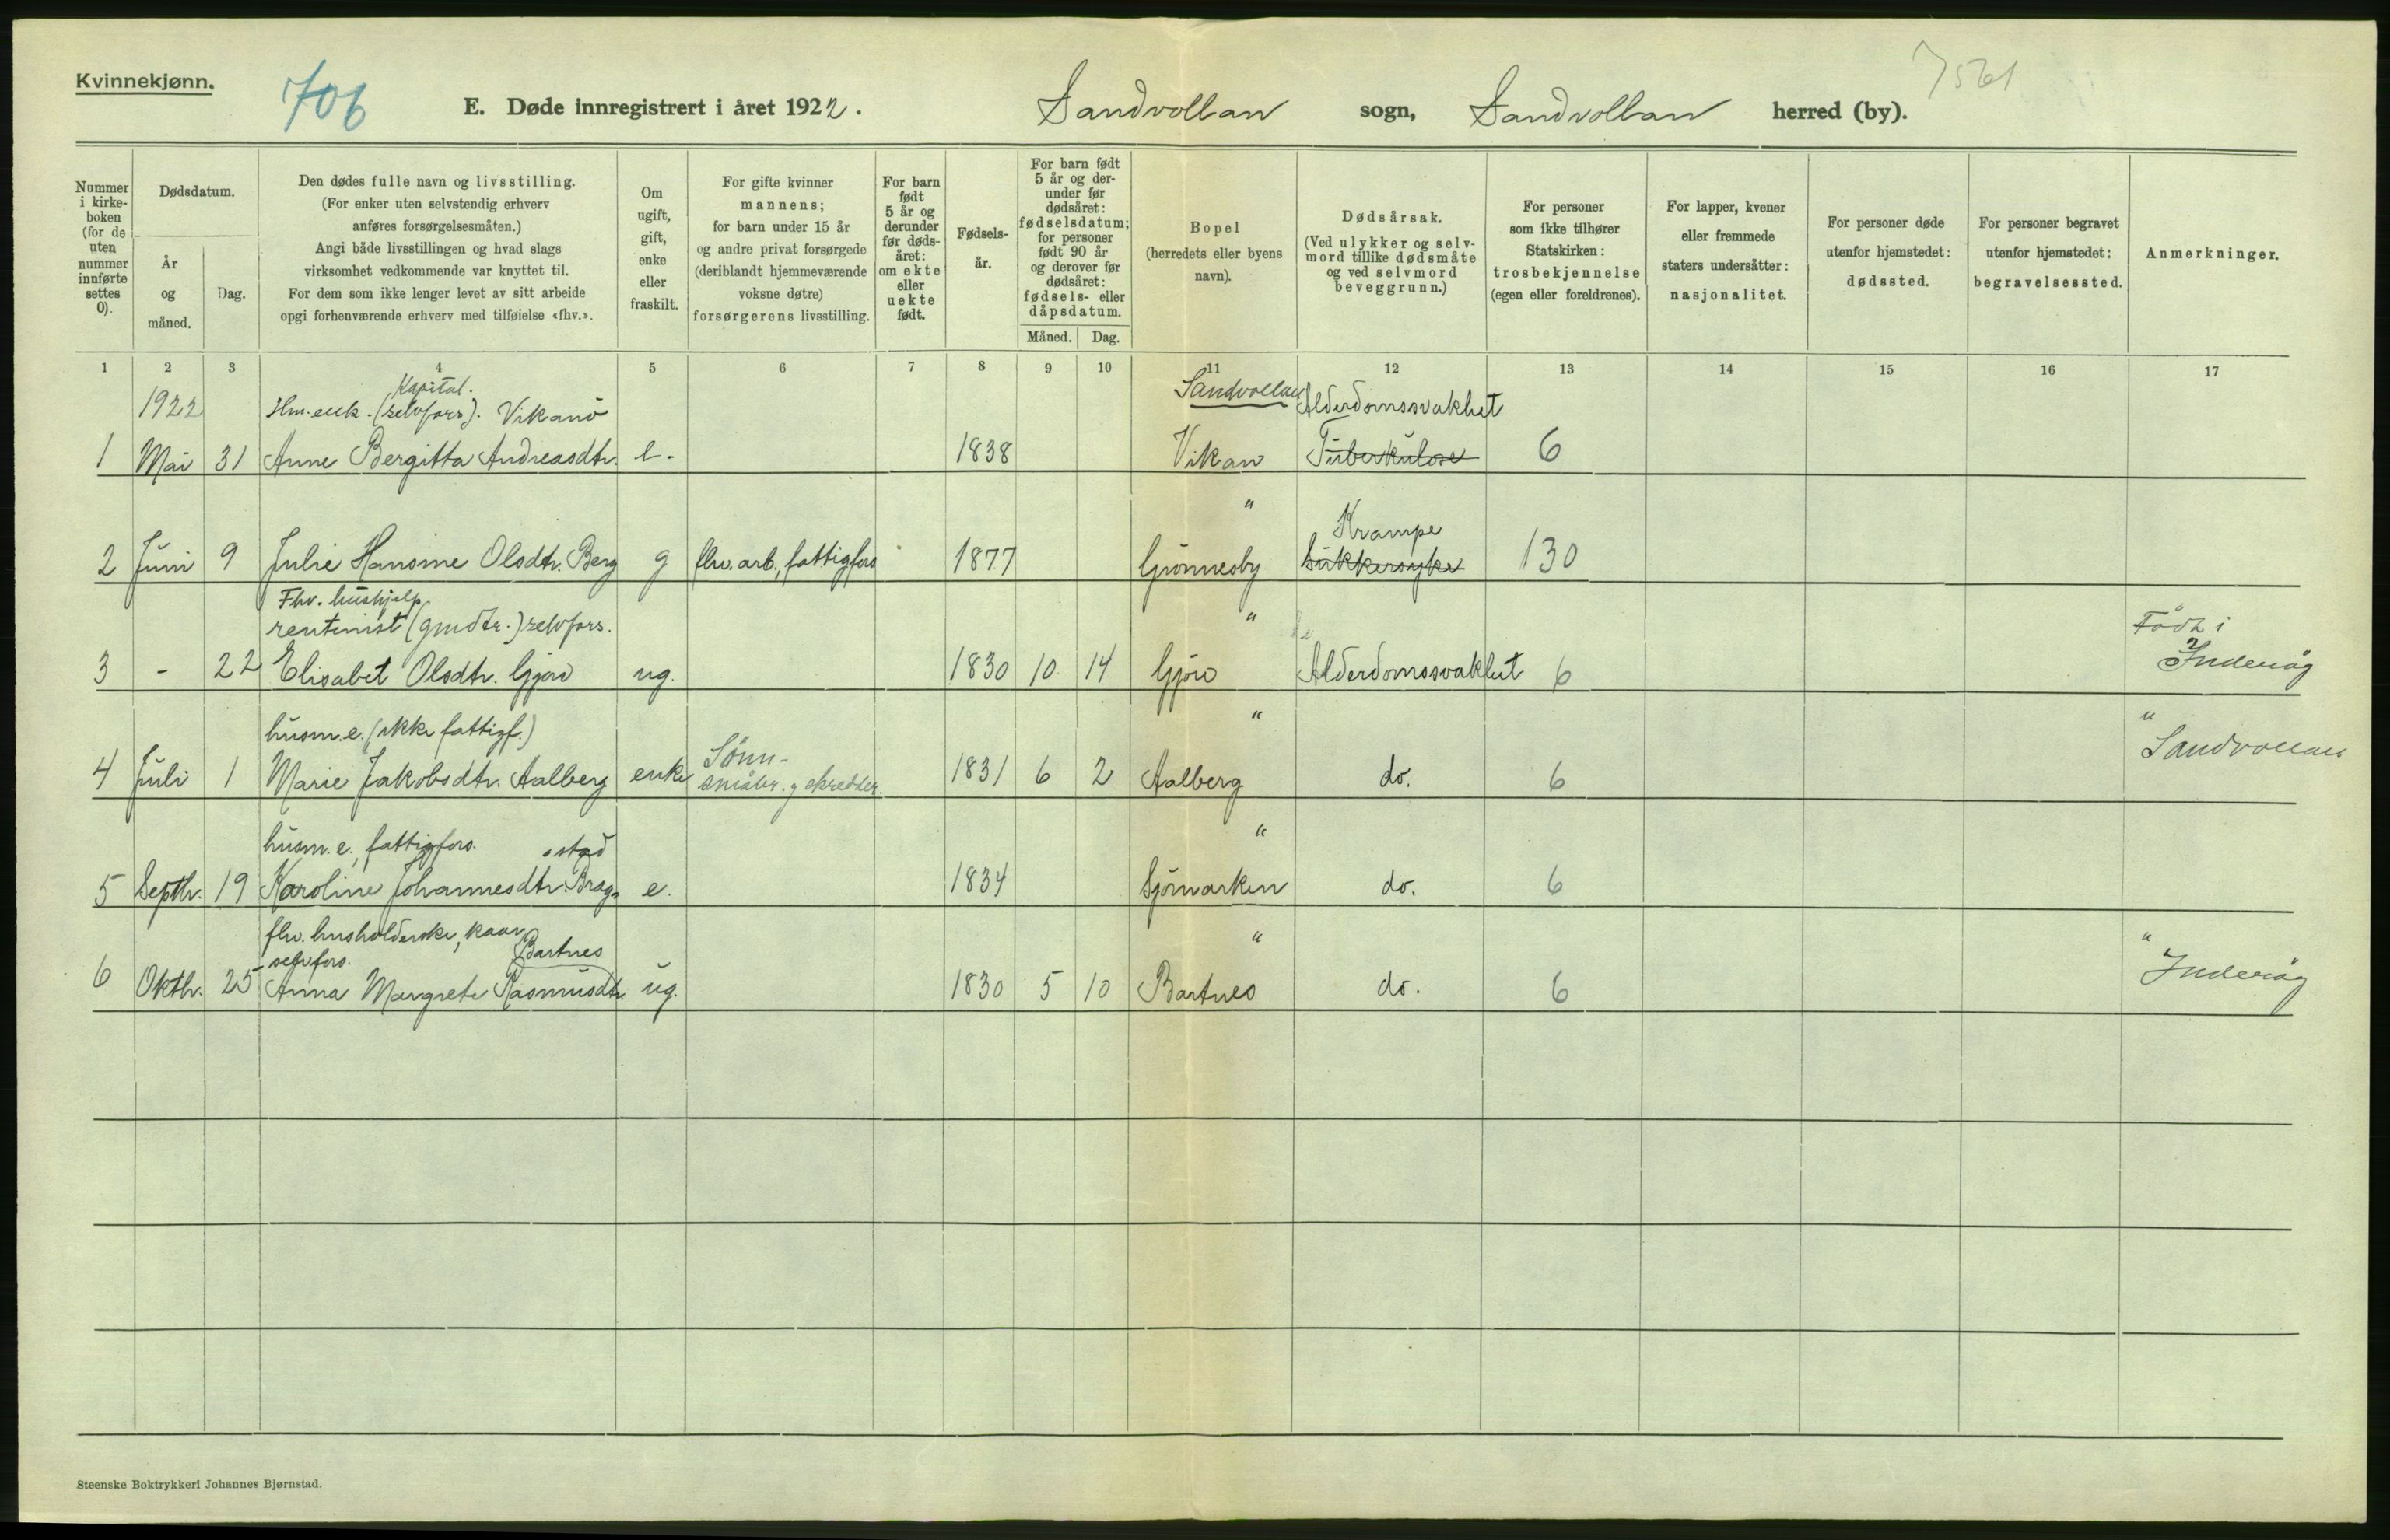 Kvinnekjønn.
706
7561
E. Døde innregistrert i året 1922.
Sandvollan sogn, Sandvollan herred (by).
Nummer i kirke- boken (for de uten nummer innførte settes 0).
Dødsdatum.
År og måned.
Dag.
Den dødes fulle navn og livsstilling.
(For enker uten selvstendig erhverv
anføres forsørgelsesmåten.)
Angi både livsstillingen og hvad slags
virksomhet vedkommende var knyttet til.
For dem som ikke lenger levet av sitt arbeide
opgi forhenværende erhverv med tilføielse «fhv.».
Om ugift, gift, enke eller fraskilt.
For gifte kvinner
mannens;
for barn under 15 år
og andre privat forsørgede
(deriblandt hjemmeværende
voksne døtre)
forsørgerens livsstilling.
For barn født 5 år og derunder før døds- året: om ekte eller uekte født.
Fødsels- år.
For barn født 5 år og der- under før dødsåret: fødselsdatum; for personer født 90 år og derover før dødsåret: fødsels- eller dåpsdatum.
Måned. Dag.
Bopel
(herredets eller byens
navn).
Dødsårsak.
(Ved ulykker og selv-
mord tillike dødsmåte
og ved selvmord
beveggrunn.)
For personer
som ikke tilhører
Statskirken:
trosbekjennelse
(egen eller foreldrenes).
For lapper, kvener
eller fremmede
staters undersåtter:
nasjonalitet.
For personer døde
utenfor hjemstedet:
dødssted.
For personer begravet
utenfor hjemstedet:
begravelsessted.
Anmerkninger.
1 2 3 4 5 6 7 8 9 10 11 12 13 14 15 16 17
Kapital.
1922 Hm. enk. (selvfors). Vikanö Sandvollan Alderdomssvakhet
1 Mai 31 Anne Bergitta Andreasdtr. e. 1838 Vikan Tuberkulose 6
" Krampe
2 Juni 9 Julie Hansine Olsdtr. Berg g fhv. arb., fattigfors 1877 Grønnesby Sukkersyke 130
Fhv. hushjelp
rentenist (gmdtr.) selvfors. " Födt i
3 - 22 Elisabet Olsdtr. Gjørv ug. 1830 10 14 Gjörv Alderdomssvakhet 6 Inderöy
husm. e. (ikke fattigf.) " "
4 Juli 1 Marie Jakobsdtr. Aalberg enke Sönn- småbr. og skredder. 1831 6 2 Aalberg do. 6 Sandvollan
husm. e., fattigfors. stad "
5 Septbr. 19 Karoline Johannesdtr. Brag- e. 1834 Sjömarken do. 6
fhv. husholderske, kaar, " "
selvfors. Bartnes
6 Oktbr. 25 Anna Margrete Rasmusdtr ug. 1830 5 10 Bartnes do. 6 Inderöy
Steenske Boktrykkeri Johannes Bjørnstad.